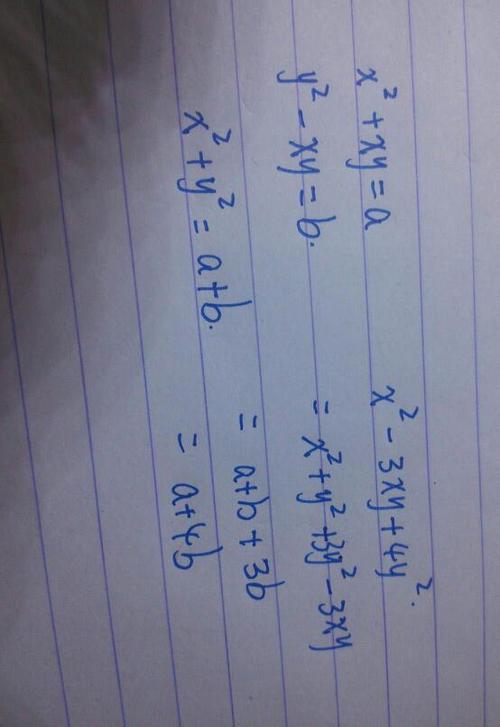 x² + xy = a
y² - xy = b.
x² + y² = a+b.
x² - 3xy + 4y².
= x² + y² + 3y² - 3xy
= a+b + 3b
= a+4b